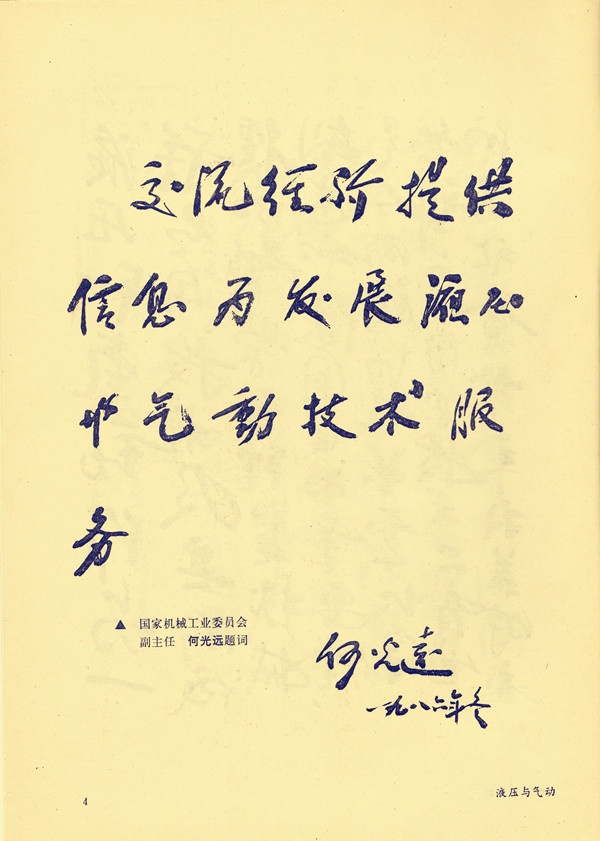 交流经验提供
信息为发展液压
与气动技术服
务
▲ 国家机械工业委员会
副主任 何光远题词
何光远
一九八六年冬
4
液压与气动